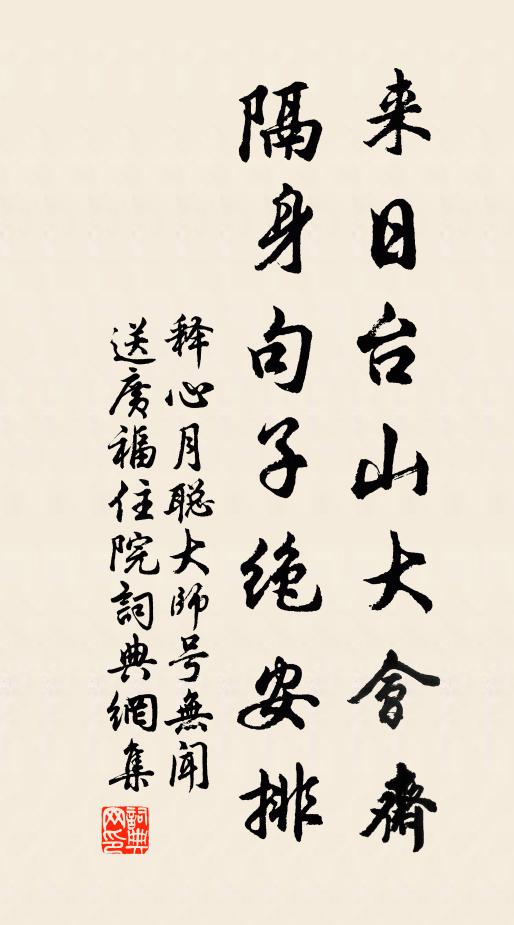 来日台山大會齋
隔身句子絶安排
释心月聪大师号無闻
送廣福住院詞典網集
詞典
网印